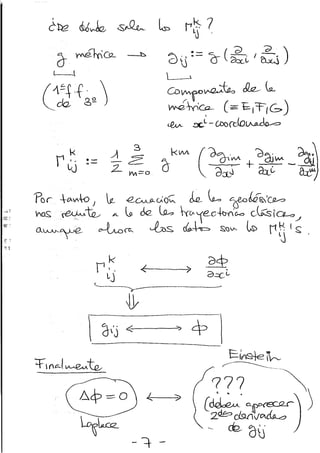 ¿De dónde salen los Γᵏᵢⱼ ?
g métrica → gᵢⱼ := g(∂/∂xⁱ, ∂/∂xʲ)
(1ª f.f. de 3º)
componentes de la
métrica (≡E,F,G)
en xⁱ-coordenadas
Γᵏᵢⱼ := 1/2 3 Σ m=0 gᵏᵐ (∂gᵢₘ/∂xʲ + ∂gⱼₘ/∂xⁱ −
Por tanto, la ecuación de las geodésicas
nos remite a la de las trayectorias clásicas,
aunque ahora los datos son los Γᵏᵢⱼ's.
Γᵏᵢⱼ ←→ ∂ϕ/∂xⁱ
⇓
gᵢⱼ ←→ ϕ
Finalmente
Einstein
Δϕ = 0 ←→ ???
(deben aparecer
2ᵃˢ derivadas
de gᵢⱼ)
Laplace
- 7 -